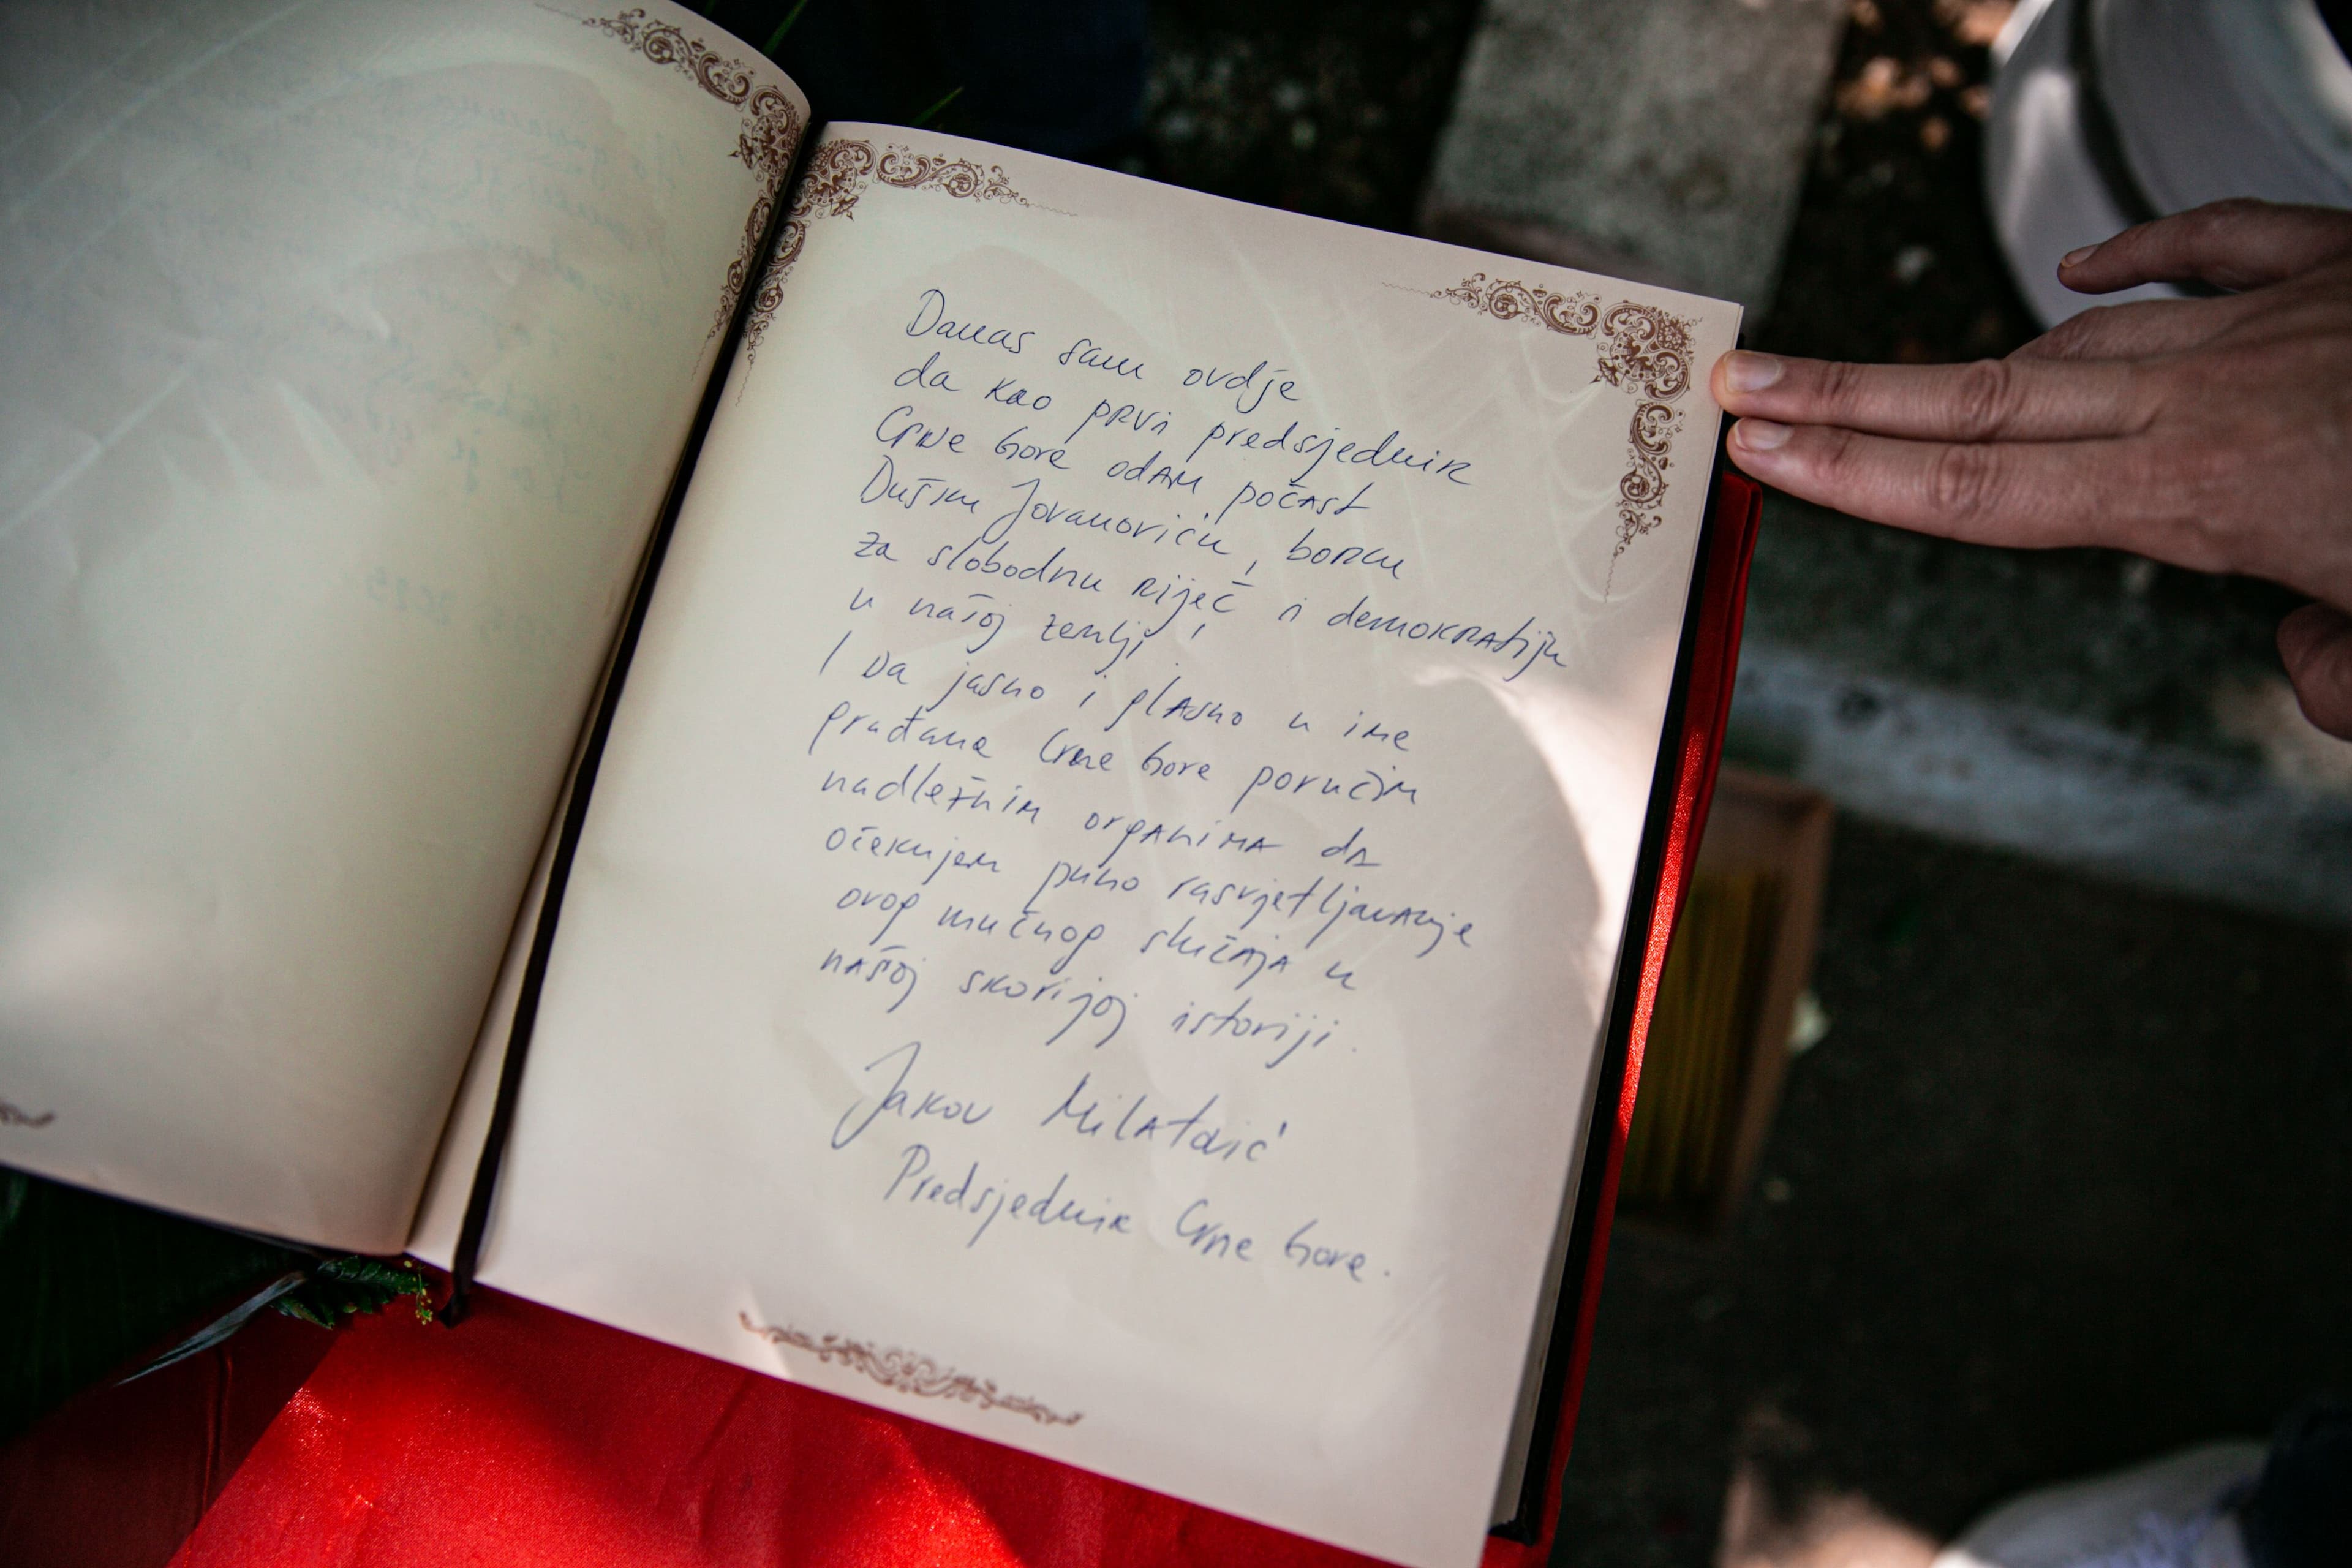 Danas sam ovdje
da kao prvi predsjednik
Crne Gore odam počast
Dušku Jovanoviću, borcu
za slobodnu riječ i demokratiju
u našoj zemlji.
I da jasno i glasno u ime
građana Crne Gore poručim
nadležnim organima da
očekujem puno rasvjetljavanje
ovog mučnog slučaja u
našoj skorijoj istoriji.
Jakov Milatović
Predsjednik Crne Gore.